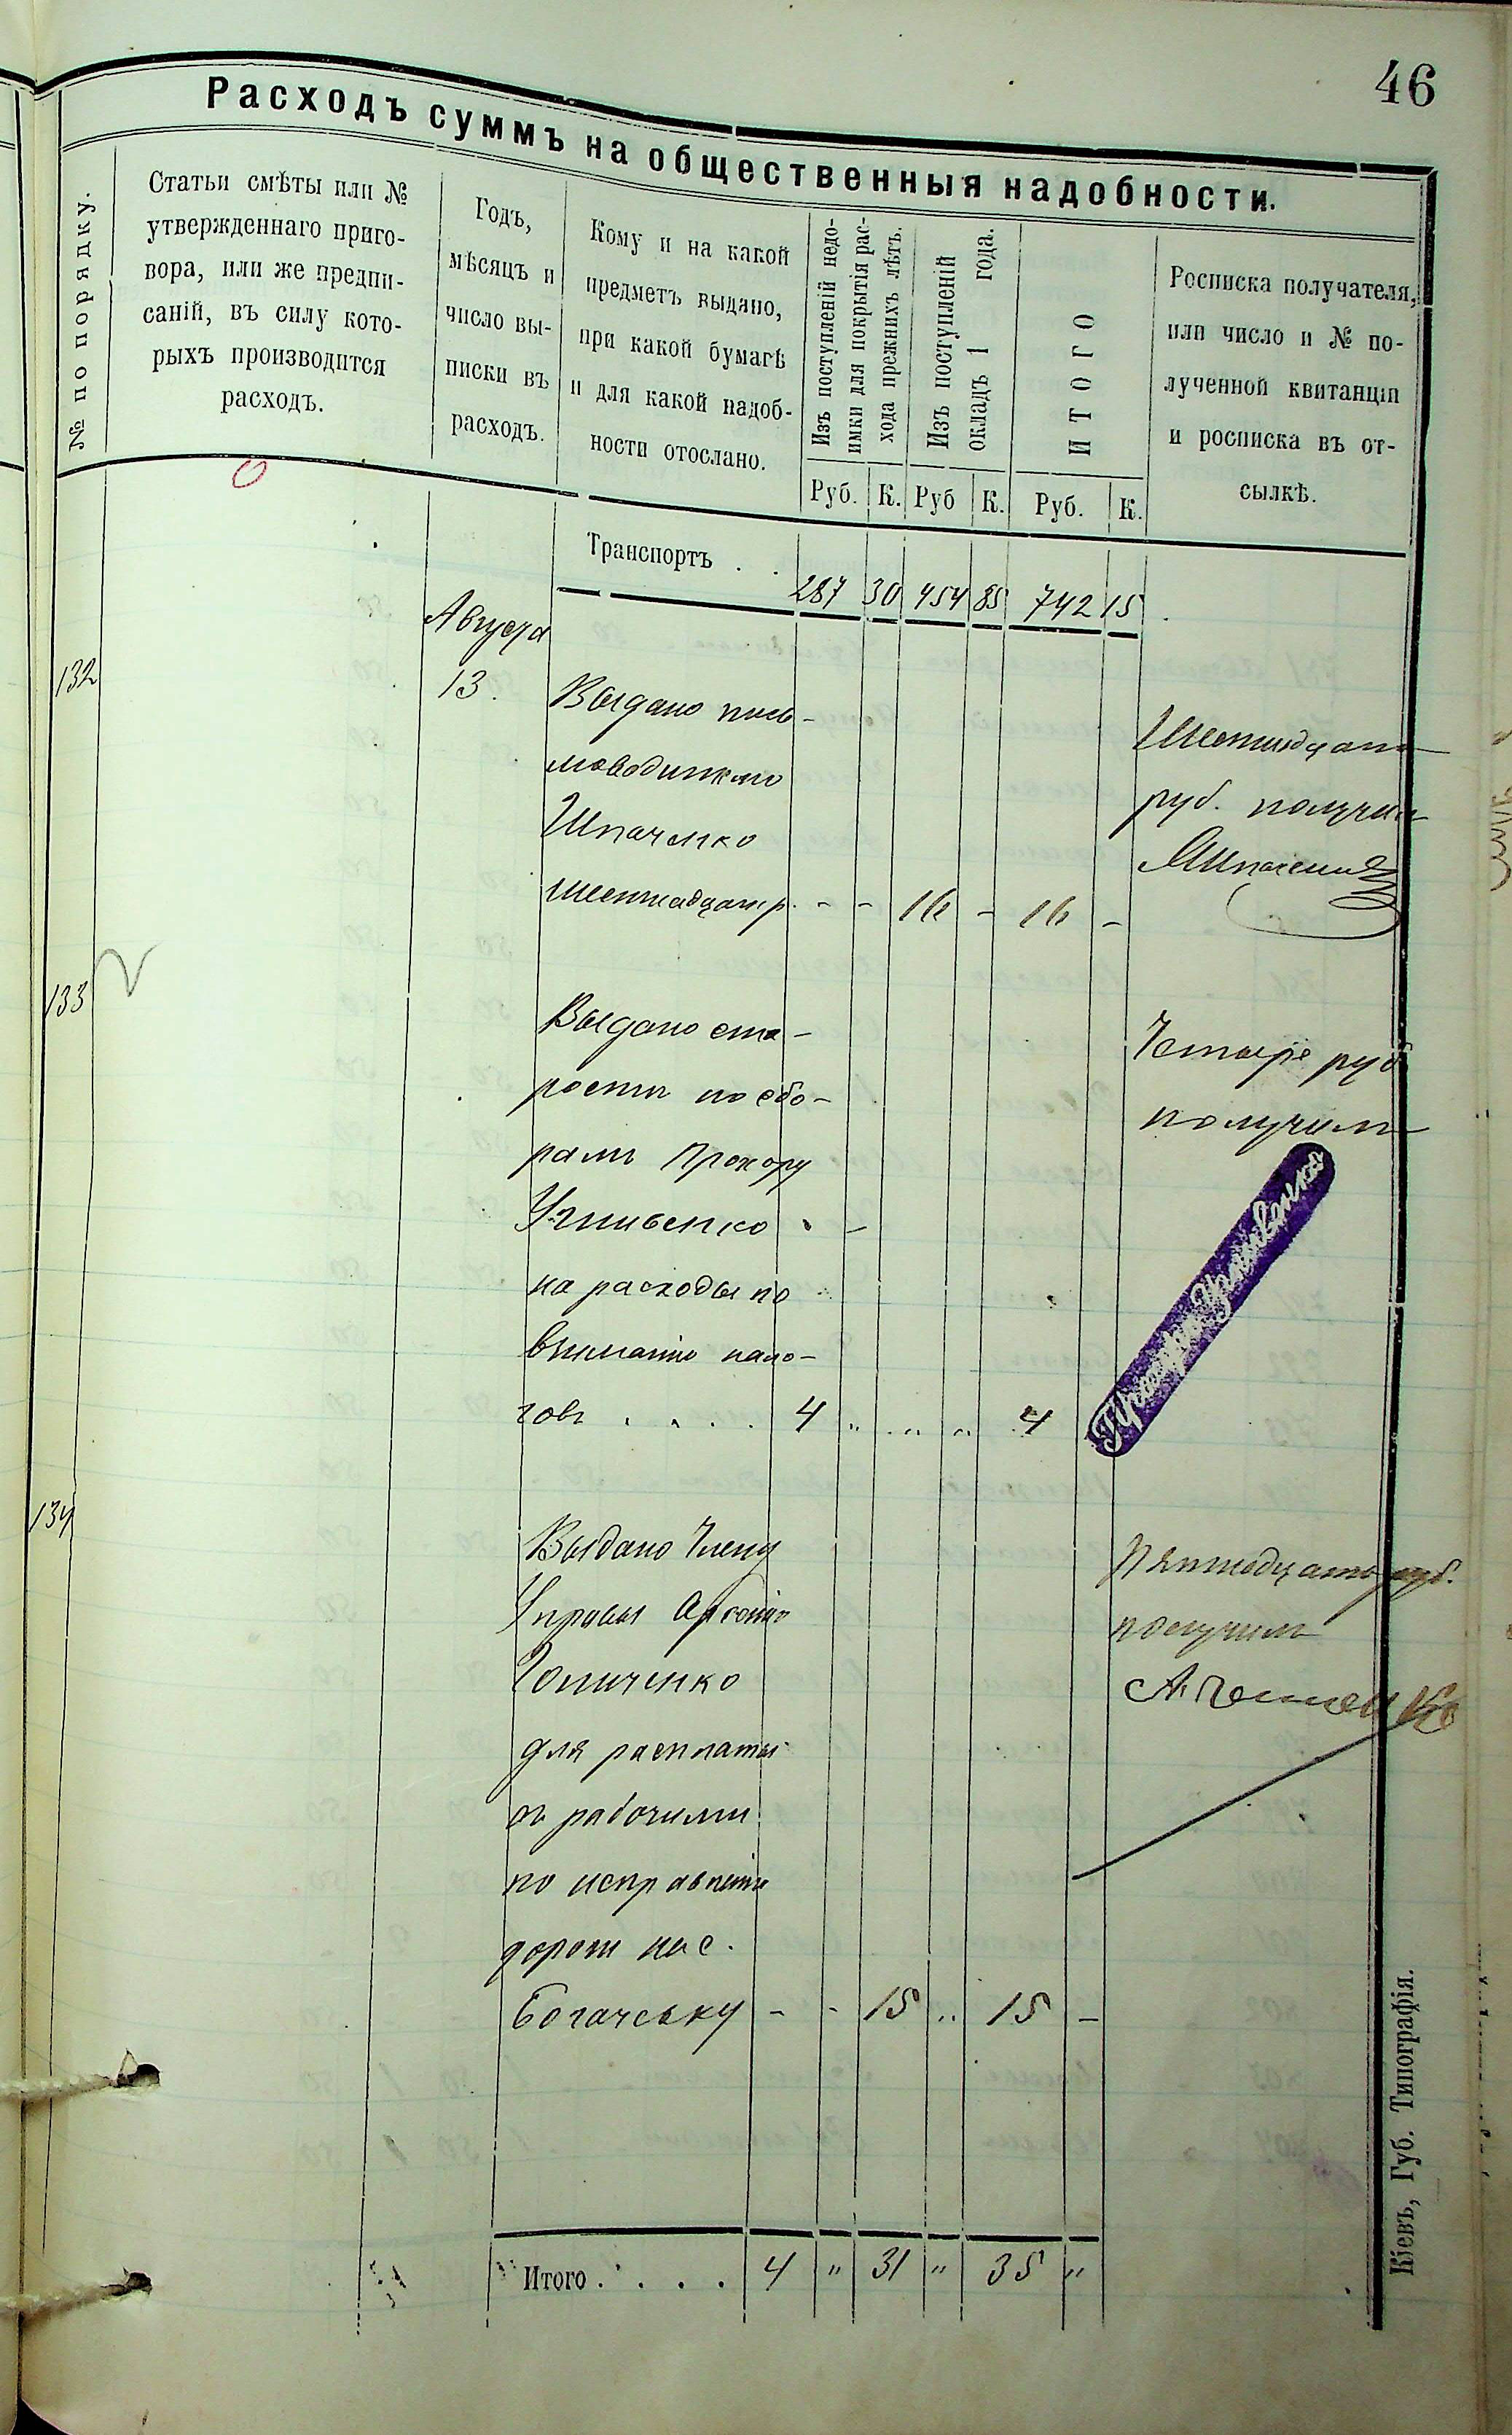 46
Расходъ суммъ на общественныя надобности.
№ по порядку.
Статьи смѣты или №
утвержденнаго приго-
вора, или же предпи-
саній, въ силу кото-
рыхъ производится
расходъ.
Годъ,
мѣсяцъ и
число вы-
писки въ
расходъ.
Кому и на какой
предметъ выдано,
при какой бумагѣ
и для какой надоб-
ности отослано.
Изъ поступленій недо-
имки для покрытія рас-
хода прежнихъ лѣтъ.
Изъ поступленій
окладъ 1 года.
ИТОГО
Росписка получателя,
или число и № по-
лученной квитанціи
и росписка въ от-
сылкѣ.
Руб. К. Руб К. Руб. К.
Транспортъ . . 287 30 454 85 742 15
Августа
132 13. Выдано пись-
моводителю
Шпаченко
шестнадцать р. - - 16 - 16 -
Шестнадцать
руб. получилъ
133
Выдано ста-
ростѣ по сбо-
рамъ Прохору
на расходы по
взиманію нало-
говъ . . . . 4 " " " 4
Четыре руб
получилъ
134
Выдано Члену
Управы
для расплаты
съ рабочими
по исправленію
дорогъ
- - 15 " 15 -
Пятнадцать руб.
получилъ
Итого . . . . 4 " 31 " 35 "
Кіевъ, Губ. Типографія.